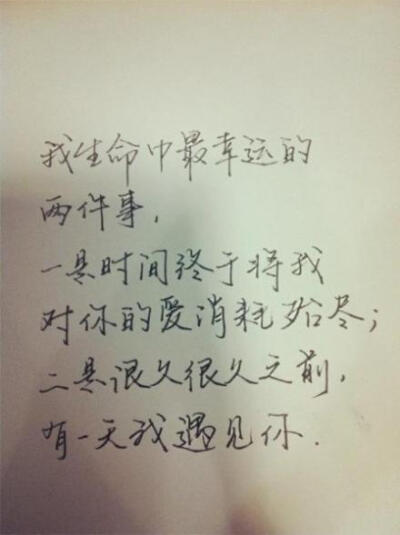 我生命中最幸运的
两件事，
一是时间终于将我
对你的爱消耗殆尽；
二是很久很久之前，
有一天我遇见你.